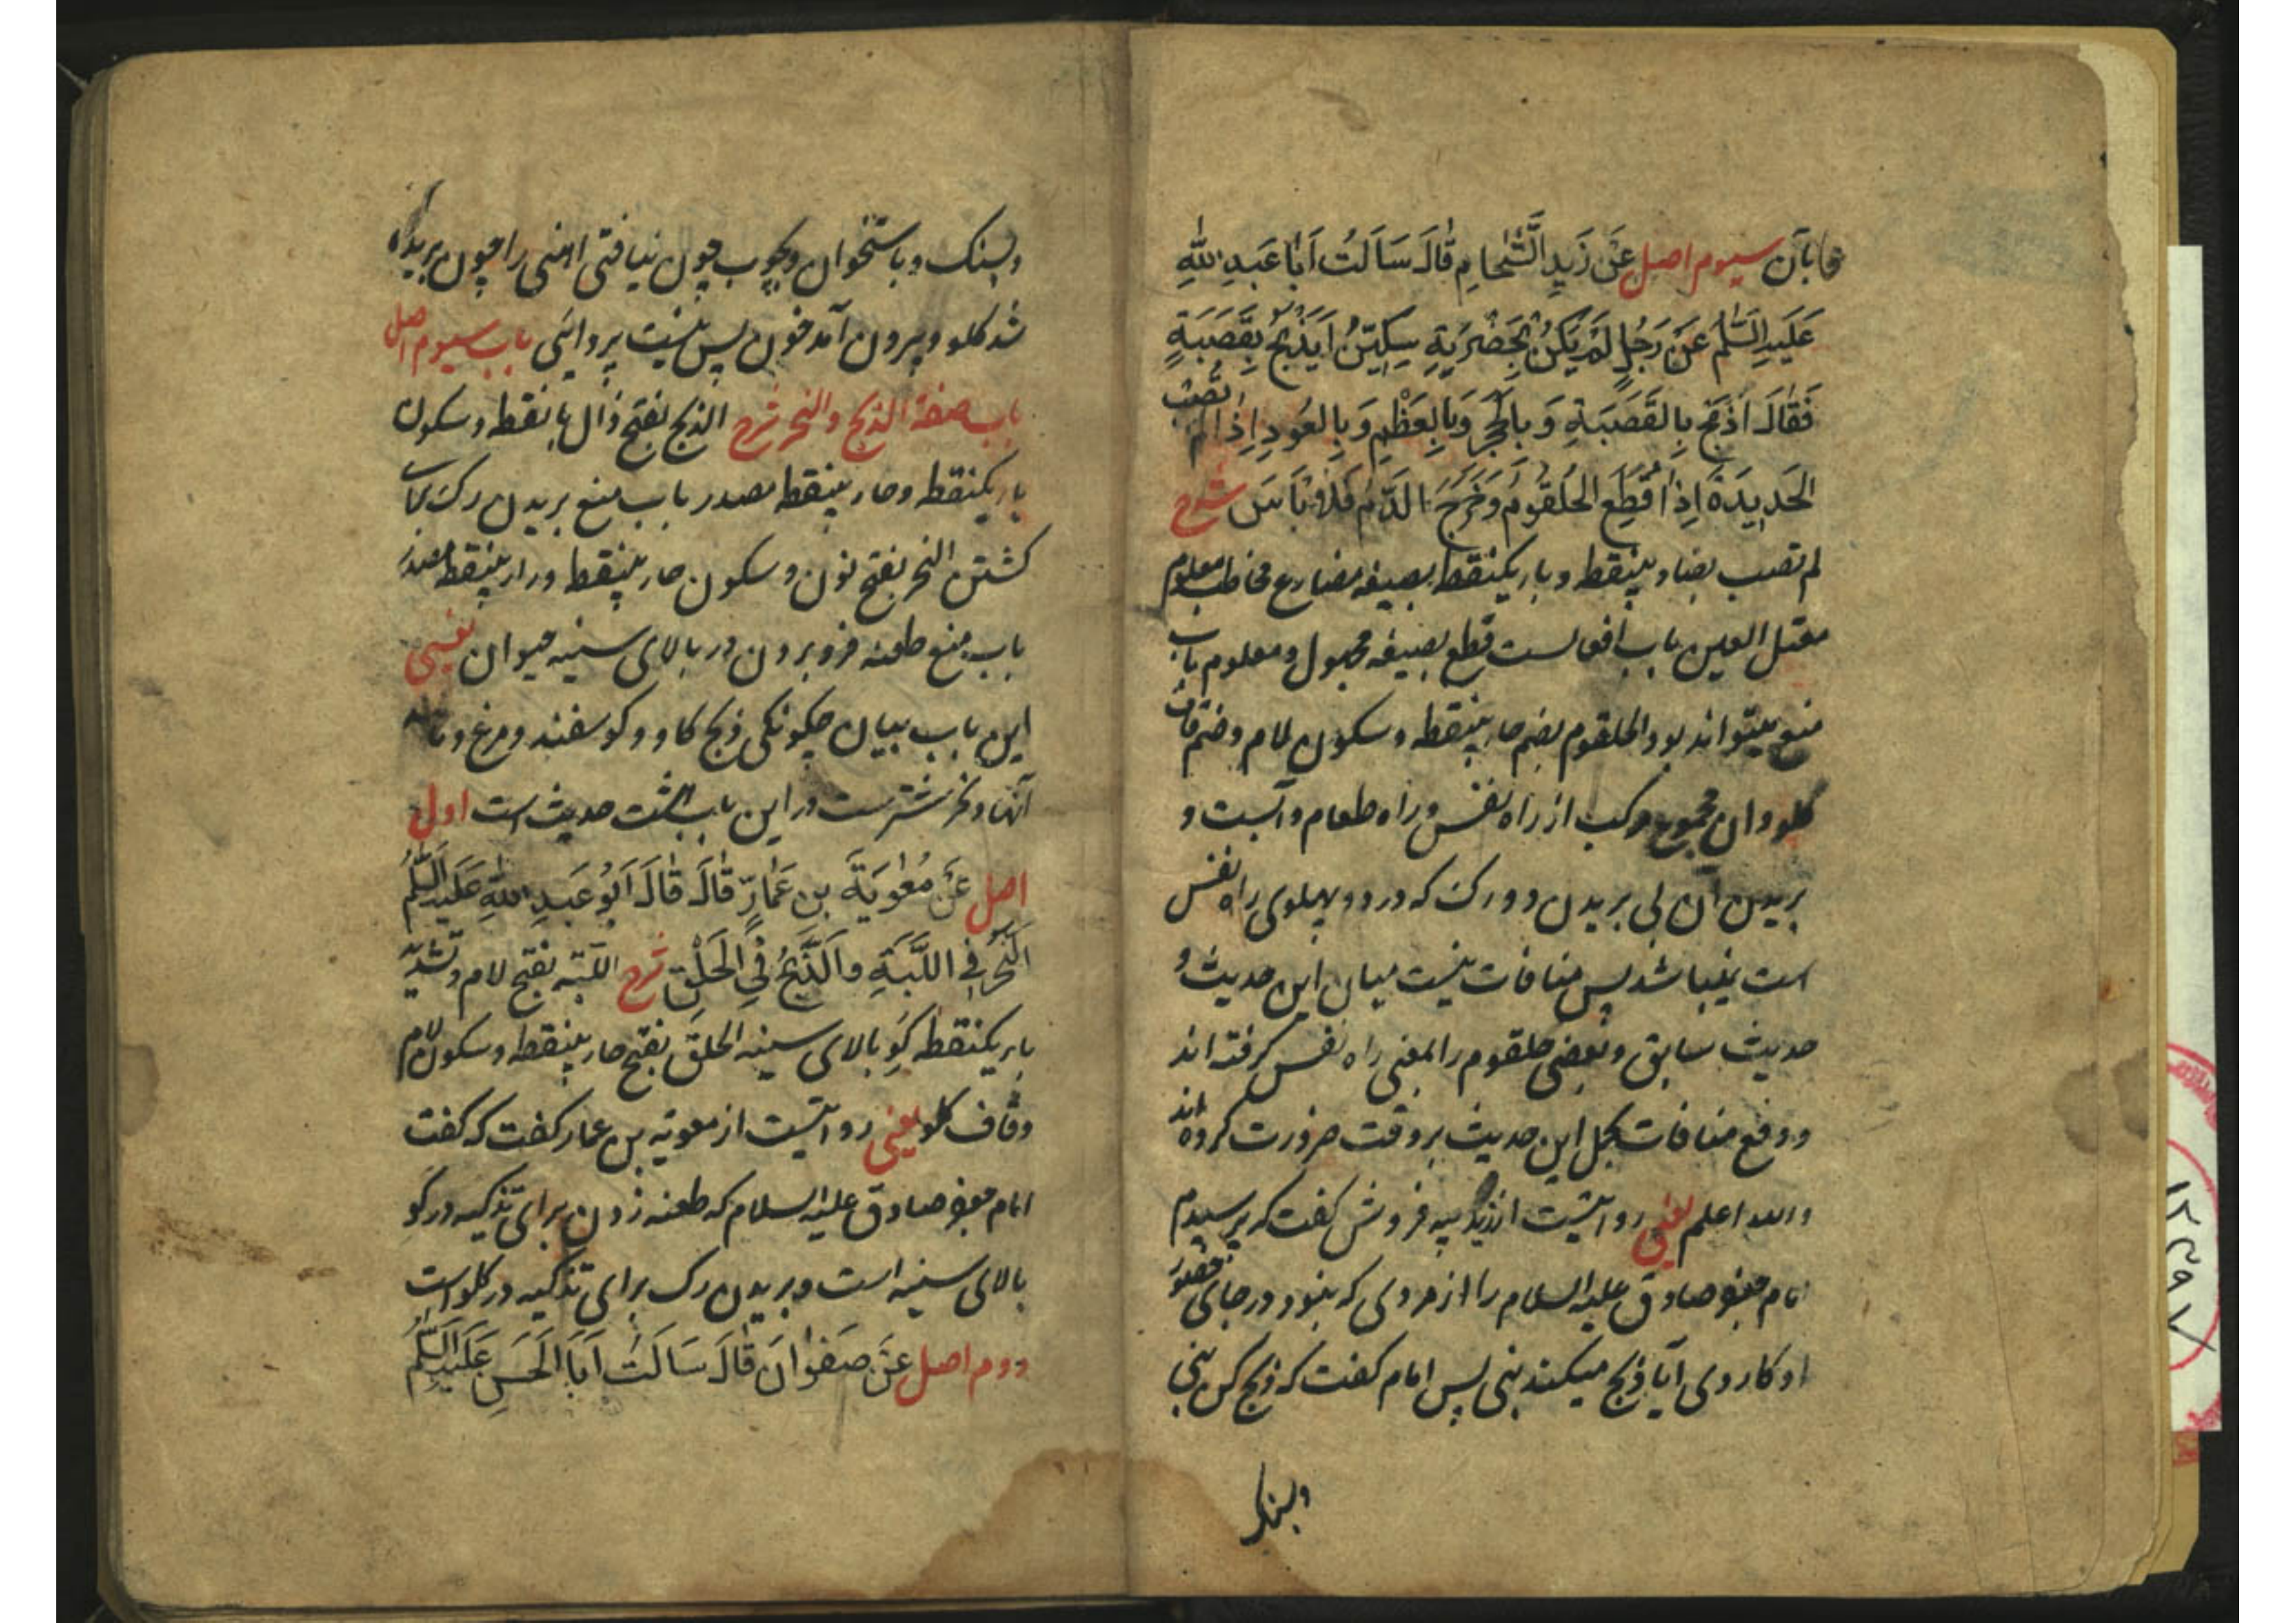 و با آن سیوم اصل عَنْ زَیدٍ الشَّحامِ قالَ سَاَلتُ اَبا عَبدِ اللهِ
عَلَیهِ السَّلم عَنْ رَجُلٍ لَم یَکُنْ بِحَضرَتِهِ سِکّینٌ اَیَذبَحُ بِقَصَبَةٍ
فَقالَ اذبَح بِالقَصَبَةِ وَ بِالحَجَرِ وَ بِالعَظمِ وَ بِالعُودِ اِذا لَم تُصِب
الحَدیدَةَ اِذا قُطِعَ الحُلقُومُ وَ خَرَجَ الدَّمُ فَلا بَاسَ شرح
لم تصب بصاد بینقطه و باء یکنقطه بصیغه مضارع مخاطب معلوم
معتل العین باب افعالست قطع بصیغه مجهول و معلوم باب
منع میتواند بود الحلقوم بضم حاء بینقطه و سکون لام و ضم قاف
کلو و ان مجموع مرکب از راه نفس و راه طعام و آبست و
بریدن آن بی بریدن دو رک که در دو پهلوی راه نفس
است نمیباشد پس منافات نیست میان این حدیث و
حدیث سابق و بعضی حلقوم را بمعنی راه نفس کرفته اند
و دفع منافات بحمل این حدیث بر وقت ضرورت کرده اند
و الله اعلم یعنی روایتست از زید پیه فروش کفت که پرسیدم
امام جعفر صادق علیه السلام را از مردی که نبود در جای حضور
او کاردی آیا ذبح میکند بنی پس امام کفت که ذبح کن بنی
و بسنک
و بسنک و باستخوان و بچوب چون نیافتی اهنی را چون بریده
شد کلو و بیرون آمد خون پس نیست پروائی باب سیوم اصل
باب صفة الذبح و النحر شرح الذبح بفتح ذال با نقطه و سکون
باء یکنقطه و حاء بینقطه مصدر باب منع بریدن رک برای
کشتن النحر بفتح نون و سکون حاء بینقطه و راء بینقطه مصدر
باب منع طعنه فرو بردن در بالای سینه حیوان یعنی
این باب بیان چکونکی ذبح کاو و کوسفند و مرغ و مانند
آنها و نحر شترست در این باب هشت حدیث است اول
اصل عَنْ مُعٰویَةَ بنِ عَمارٍ قالَ قالَ اَبُو عَبدِ اللهِ عَلَیهِ السَّلم
النَّحرُ فِی اللَّبَّةِ وَ الذَّبحُ فِی الحَلقِ شرح اللبّه بفتح لام و تشدید
باء یکنقطه کَوِ بالای سینه الحلق بفتح حاء بینقطه و سکون لام
و قاف کلو یعنی روایتست از معویه بن عمار کفت که کفت
امام جعفر صادق علیه السلام که طعنه زدن برای تذکیه در کو
بالای سینه است و بریدن رک برای تذکیه در کلو است
دوم اصل عَنْ صَفوانَ قالَ سَاَلتُ اَبَا الحَسَنِ عَلَیهِ السَّلم
۱۳۹۷